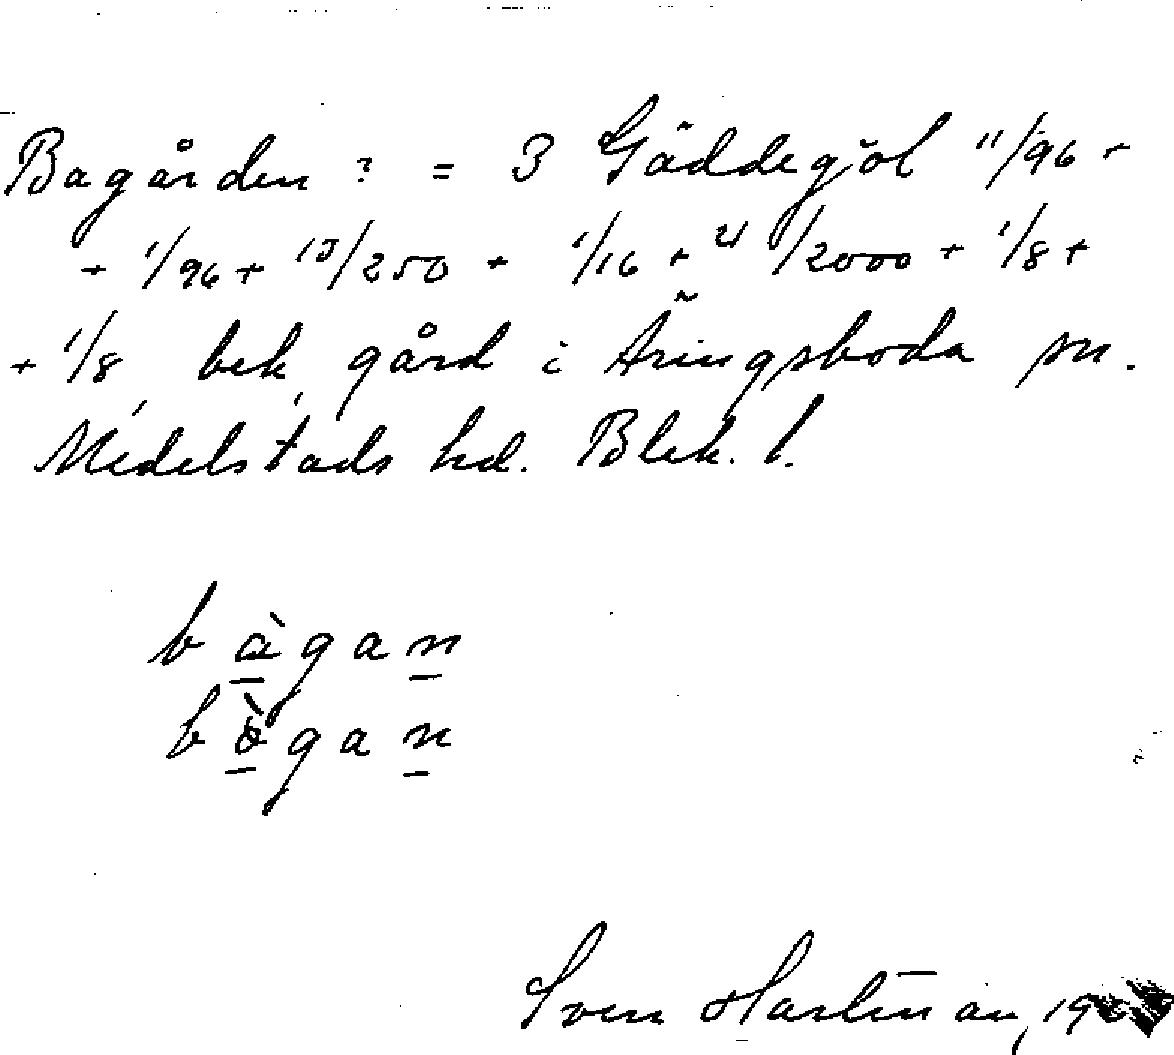 Bagården ? = 3 Gäddegöl 11/96 +
+ 1/96 + 13/250 + 1/16 + 21/2000 + 1/8 +
+ 1/8 bek. gård i Äringsboda sn.
Medelstads hd. Blek. l.
bàgan
bògan
Sven Hartman,